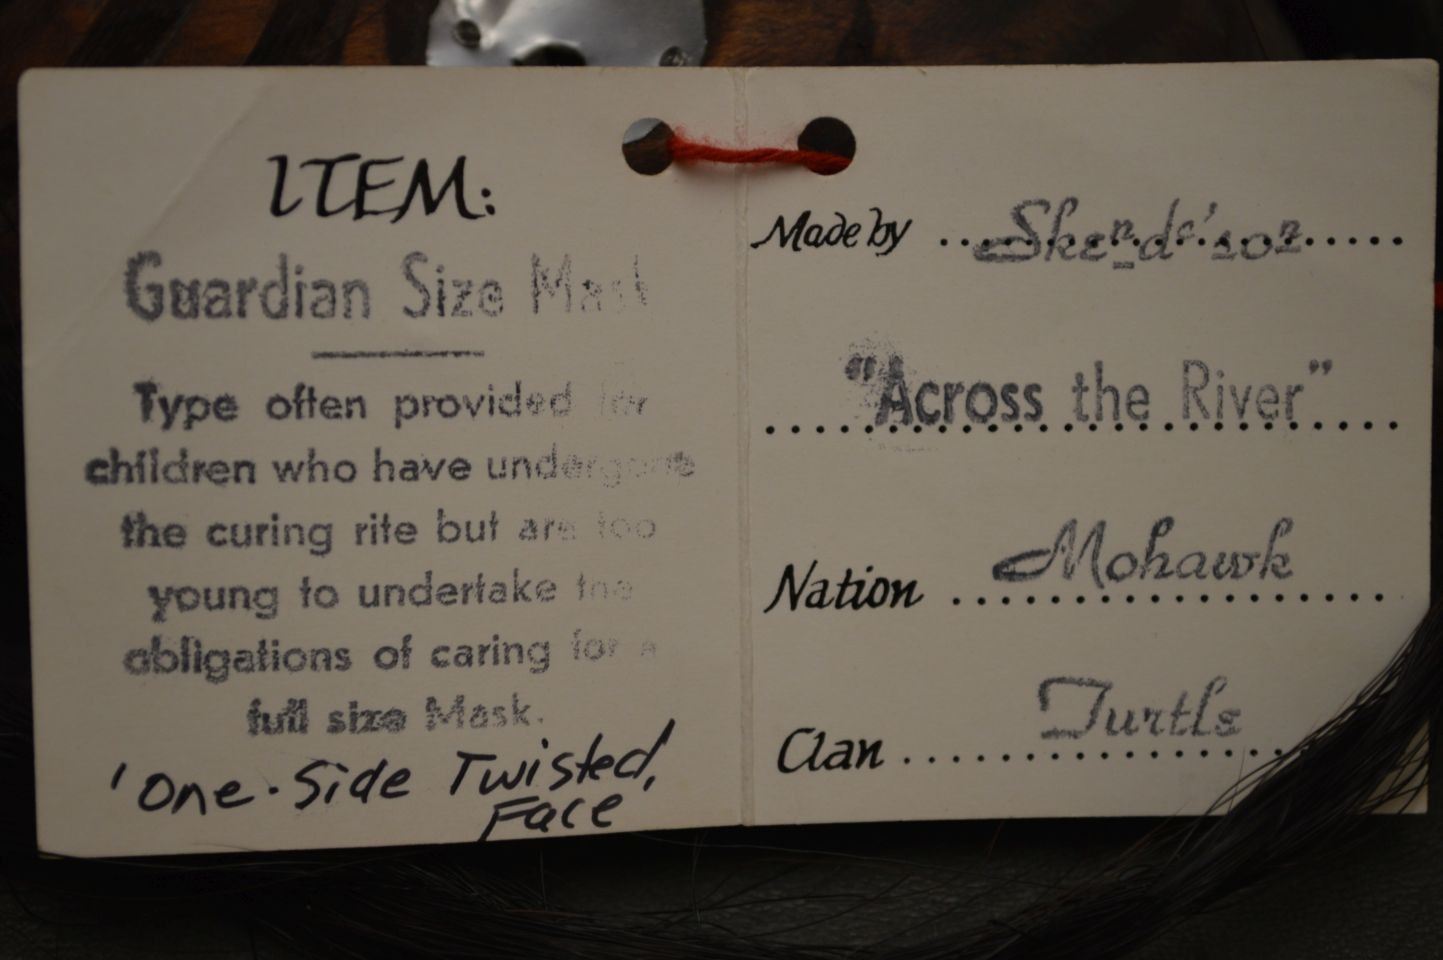 ITEM:
Guardian Size Mask
Type often provided for
children who have undergone
the curing rite but are too
young to undertake the
obligations of caring for a
full size Mask.
'One-Side Twisted,
Face
Made by
"Across the River"
Nation Mohawk
Clan Turtle